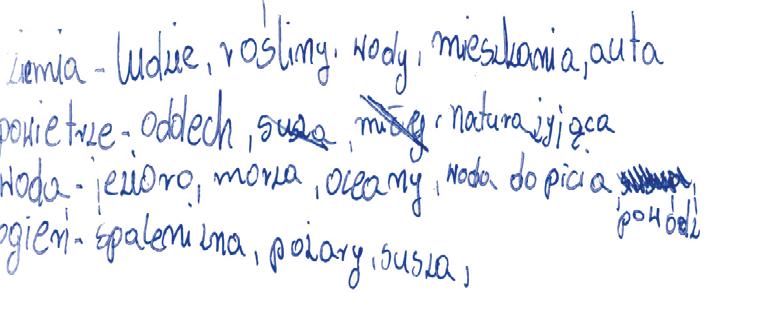 ziemia - ludzie, rośliny, wody, mieszkania, auta
powietrze - oddech, susza, natura żyjąca
woda - jezioro, morza, oceany, woda do picia
powódź
ogień - spalenizna, pożary, susza,